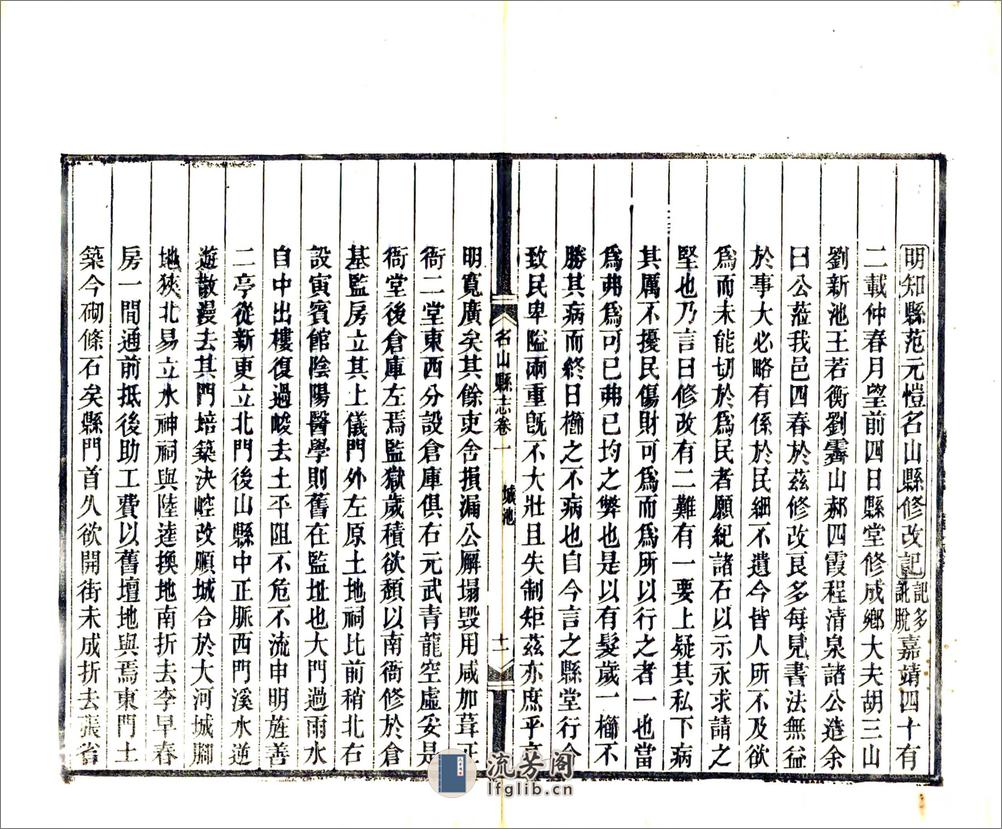 明知縣范元愷名山縣修改記記多訛脫嘉靖四十有
二載仲春月望前四日縣堂修成鄉大夫胡三山
劉新池王若衡劉霽山郝四霞程清泉諸公造余
曰公蒞我邑四春於茲修改良多每見書法無益
於事大必略有係於民細不遺今皆人所不及欲
爲而未能切於爲民者願紀諸石以示永求請之
堅也乃言曰修改有二難有一要上疑其私下病
其厲不擾民傷財可爲而爲所以行之者一也當
爲弗爲可已弗已均之弊也是以有髮歲一櫛不
勝其病而終日櫛之不病也自今言之縣堂行令
致民卑隘兩重旣不大壯且失制矩茲亦庶乎高
名山縣志卷一 城池 十一
明寬廣矣其餘吏舍損漏公廨塌毀用咸加葺正
衙二堂東西分設倉庫俱右元武青龍空虛妥是
衙堂後倉庫左焉監獄歲積欲頹以南衙修於倉
基監房立其上儀門外左原土地祠比前稍北右
設寅賓館陰陽醫學則舊在監址也大門過雨水
自中出樓復過峻去土平阻不危不流申明旌善
二亭從新更立北門後山縣中正脈西門溪水逆
遊散漫去其門培築決崆改順城合於大河城腳
地狹北易立水神祠與陸逵換地南折去李早春
房一間通前抵後助工費以舊壇地與焉東門土
築今砌條石矣縣門首久欲開街未成折去張省
流芳阁
lfglib.cn